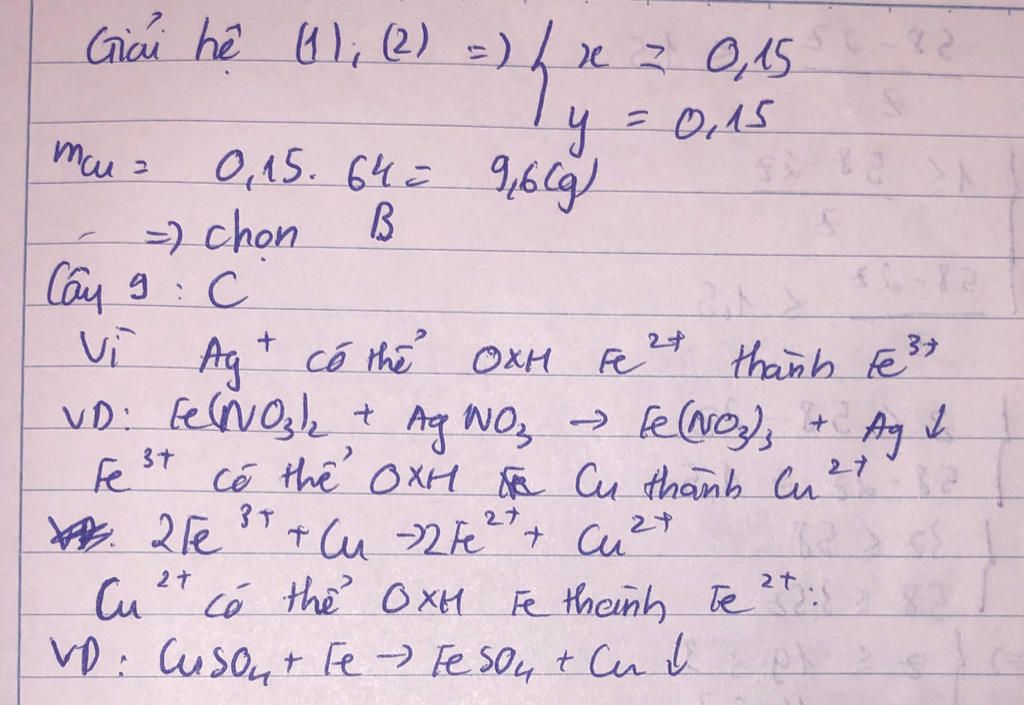 Giải hệ (1), (2) => { x = 0,15
y = 0,15
mCu = 0,15. 64 = 9,6(g)
=> chọn B
Câu 9 : C
Vì Ag⁺ có thể OXH Fe²⁺ thành Fe³⁺
VD: Fe(NO₃)₂ + AgNO₃ → Fe(NO₃)₃ + Ag ↓
Fe³⁺ có thể OXH Cu thành Cu²⁺
2Fe³⁺ + Cu → 2Fe²⁺ + Cu²⁺
Cu²⁺ có thể OXH Fe thành Fe²⁺:
VD: CuSO₄ + Fe → FeSO₄ + Cu ↓